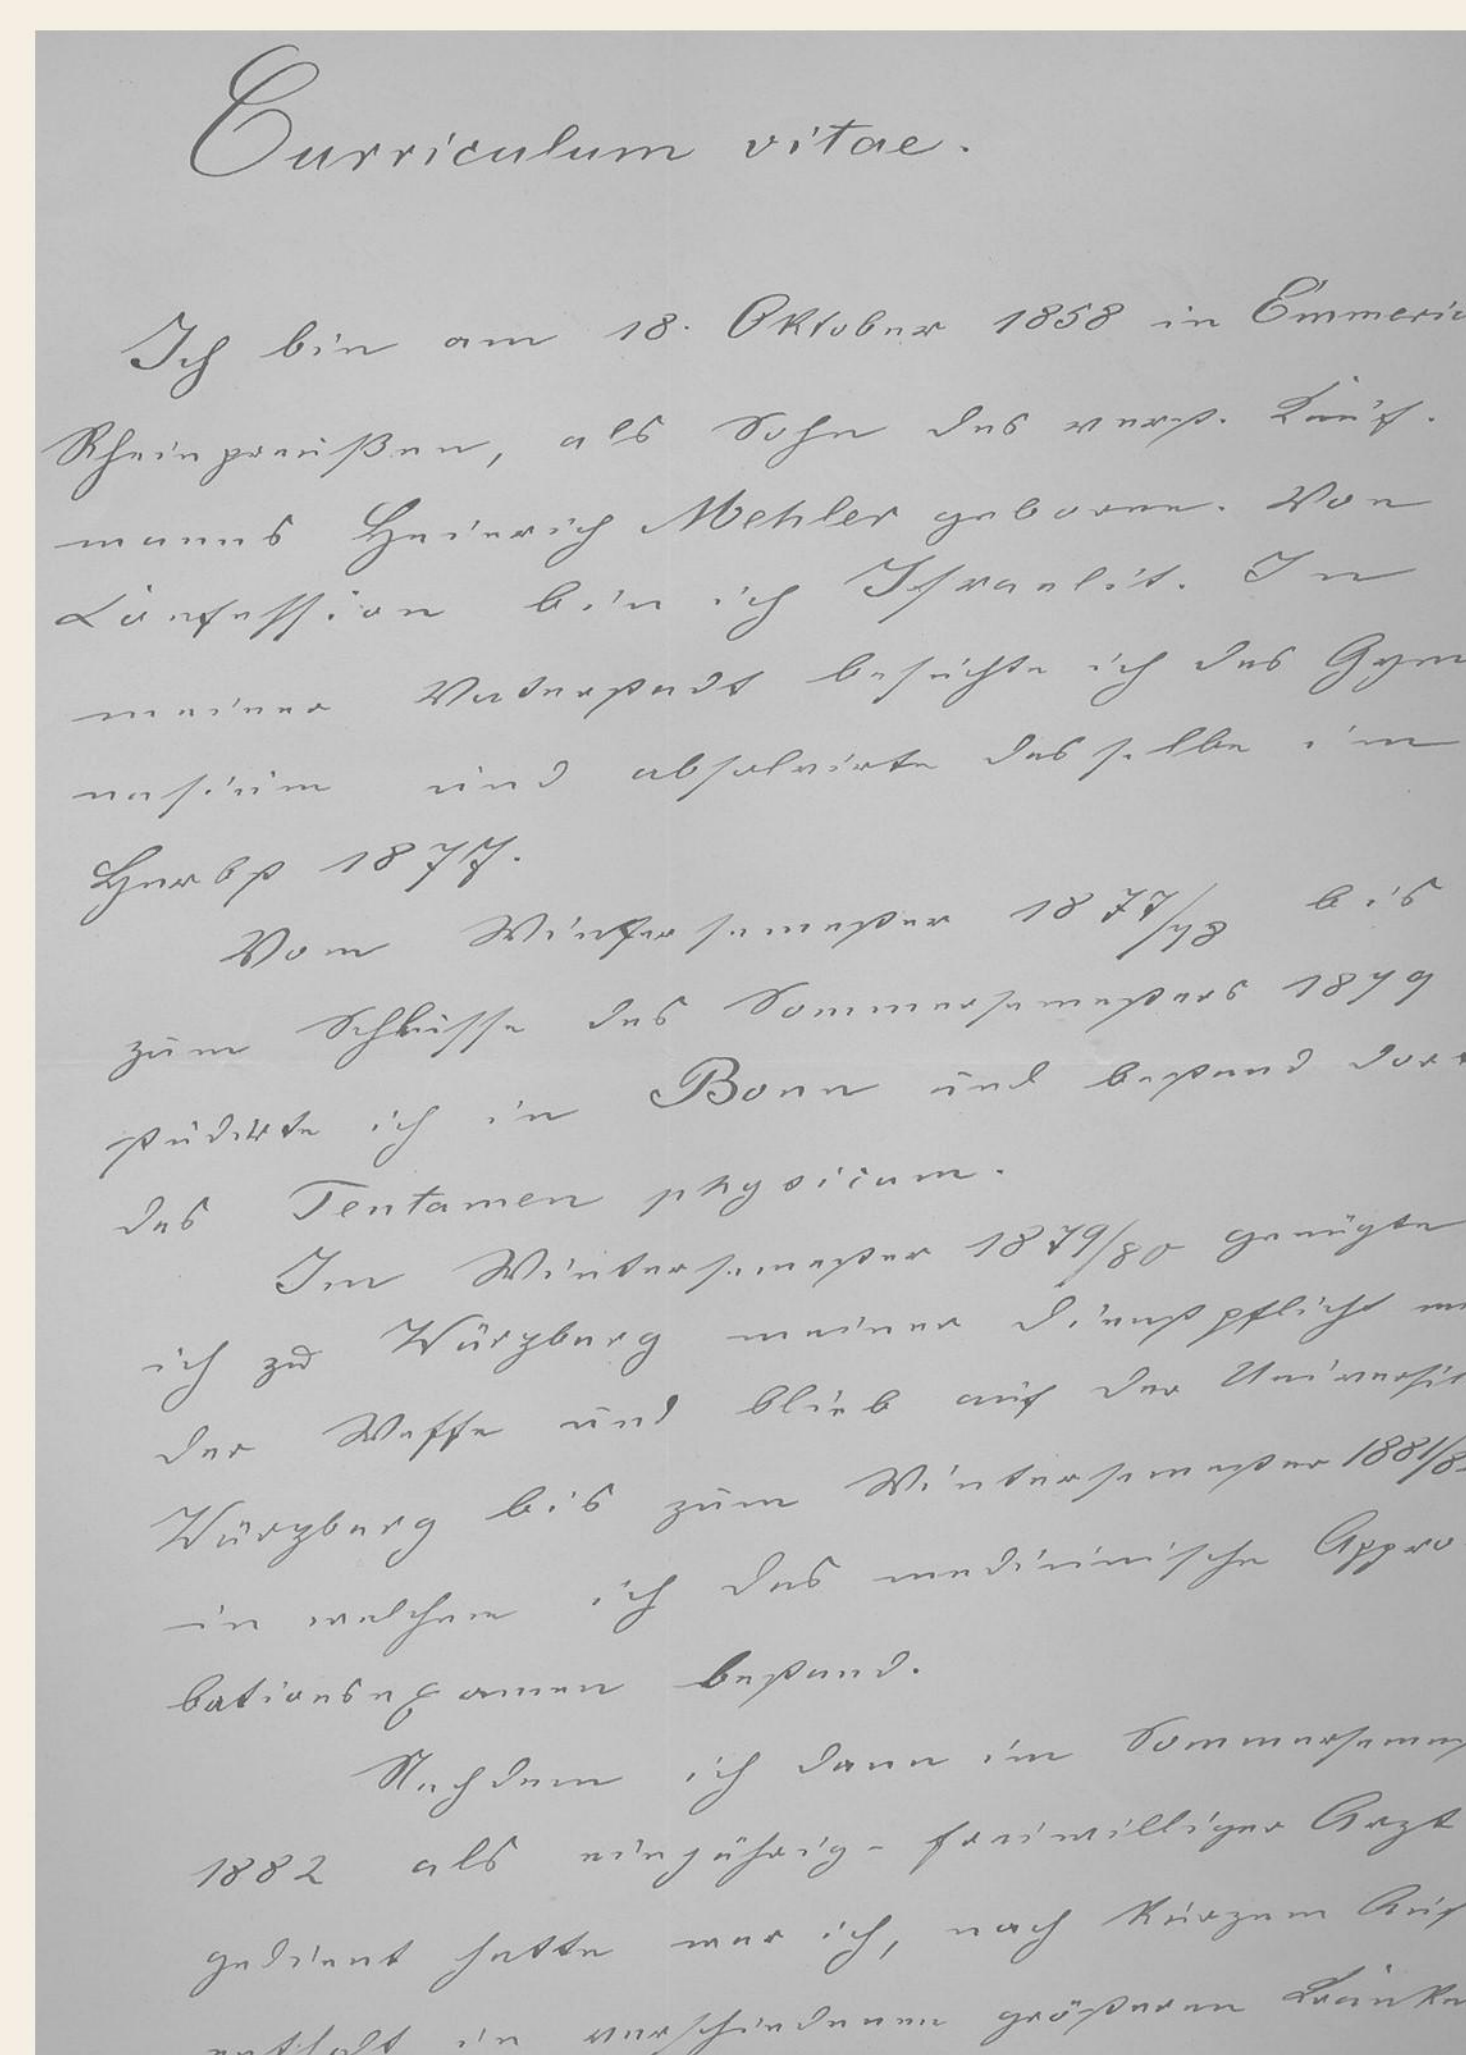 Curriculum vitae.
Ich bin am 18. Oktober 1858 in Emmeric
Rheinpreußen, als Sohn des verst. Kauf-
manns Heinrich Mehler geboren. Von
Konfession bin ich Israelit. In
meiner Vaterstadt besuchte ich das Gym
nasium und absolvirte dasselbe im
Herbst 1877.
Vom Wintersemester 1877/78 bis
zum Schlusse des Sommersemesters 1879
studirte ich in Bonn und bestand dort
das Tentamen physicum.
Im Wintersemester 1879/80 genügte
ich zu Würzburg meiner Dienstpflicht m
der Waffe und blieb auf der Universit
Würzburg bis zum Wintersemester 1881/8
in welchem ich das medicinische Appro
bationsexamen bestand.
Nachdem ich dann im Sommersemes
1882 als einjährig-freiwilliger Arzt
gedient hatte war ich, nach kurzem Auf
enthalt in verschiedenen größeren Kranke